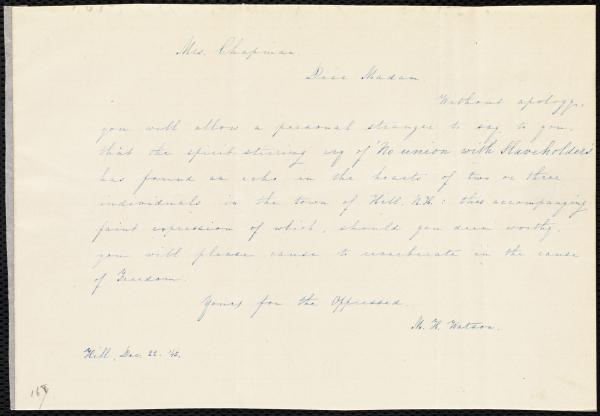 Mrs. Chapman.
Dear Madam
Without apology,
you will allow a personal stranger to say to you,
that the spirit-stirring cry of "No union with Slaveholders"
has found an echo in the hearts of two or three
individuals in the town of Hill, N.H.: the accompanying
faint expression of which, should you deem worthy,
you will please cause to reverberate in the cause
of Freedom.
Yours for the Oppressed.
M. H. Watson.
Hill, Dec. 22. '45.